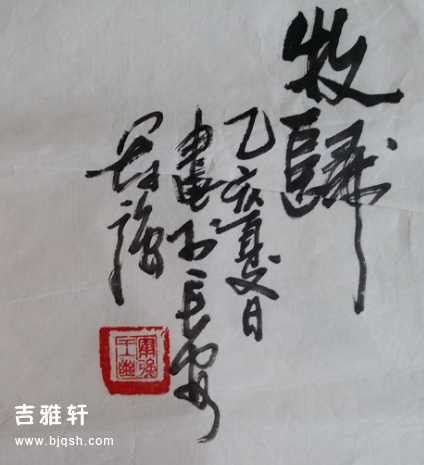 牧歸
乙亥夏日
畫於長安
吉雅轩
www.bjqsh.com